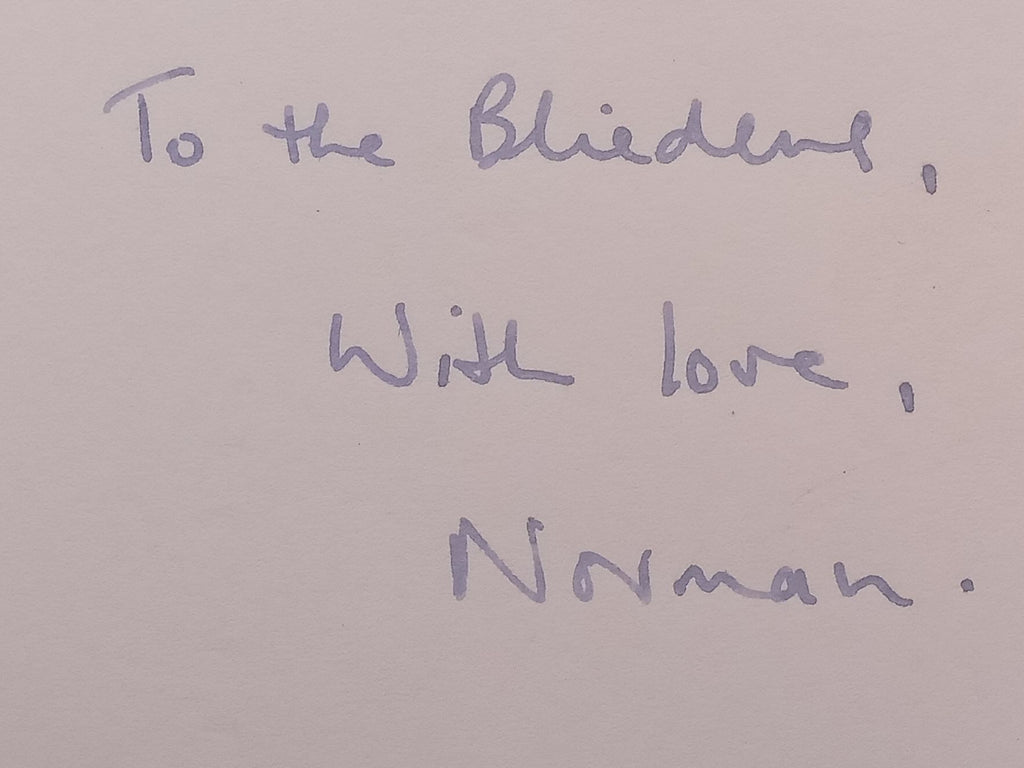 To the Bliedens,
With love,
Norman.